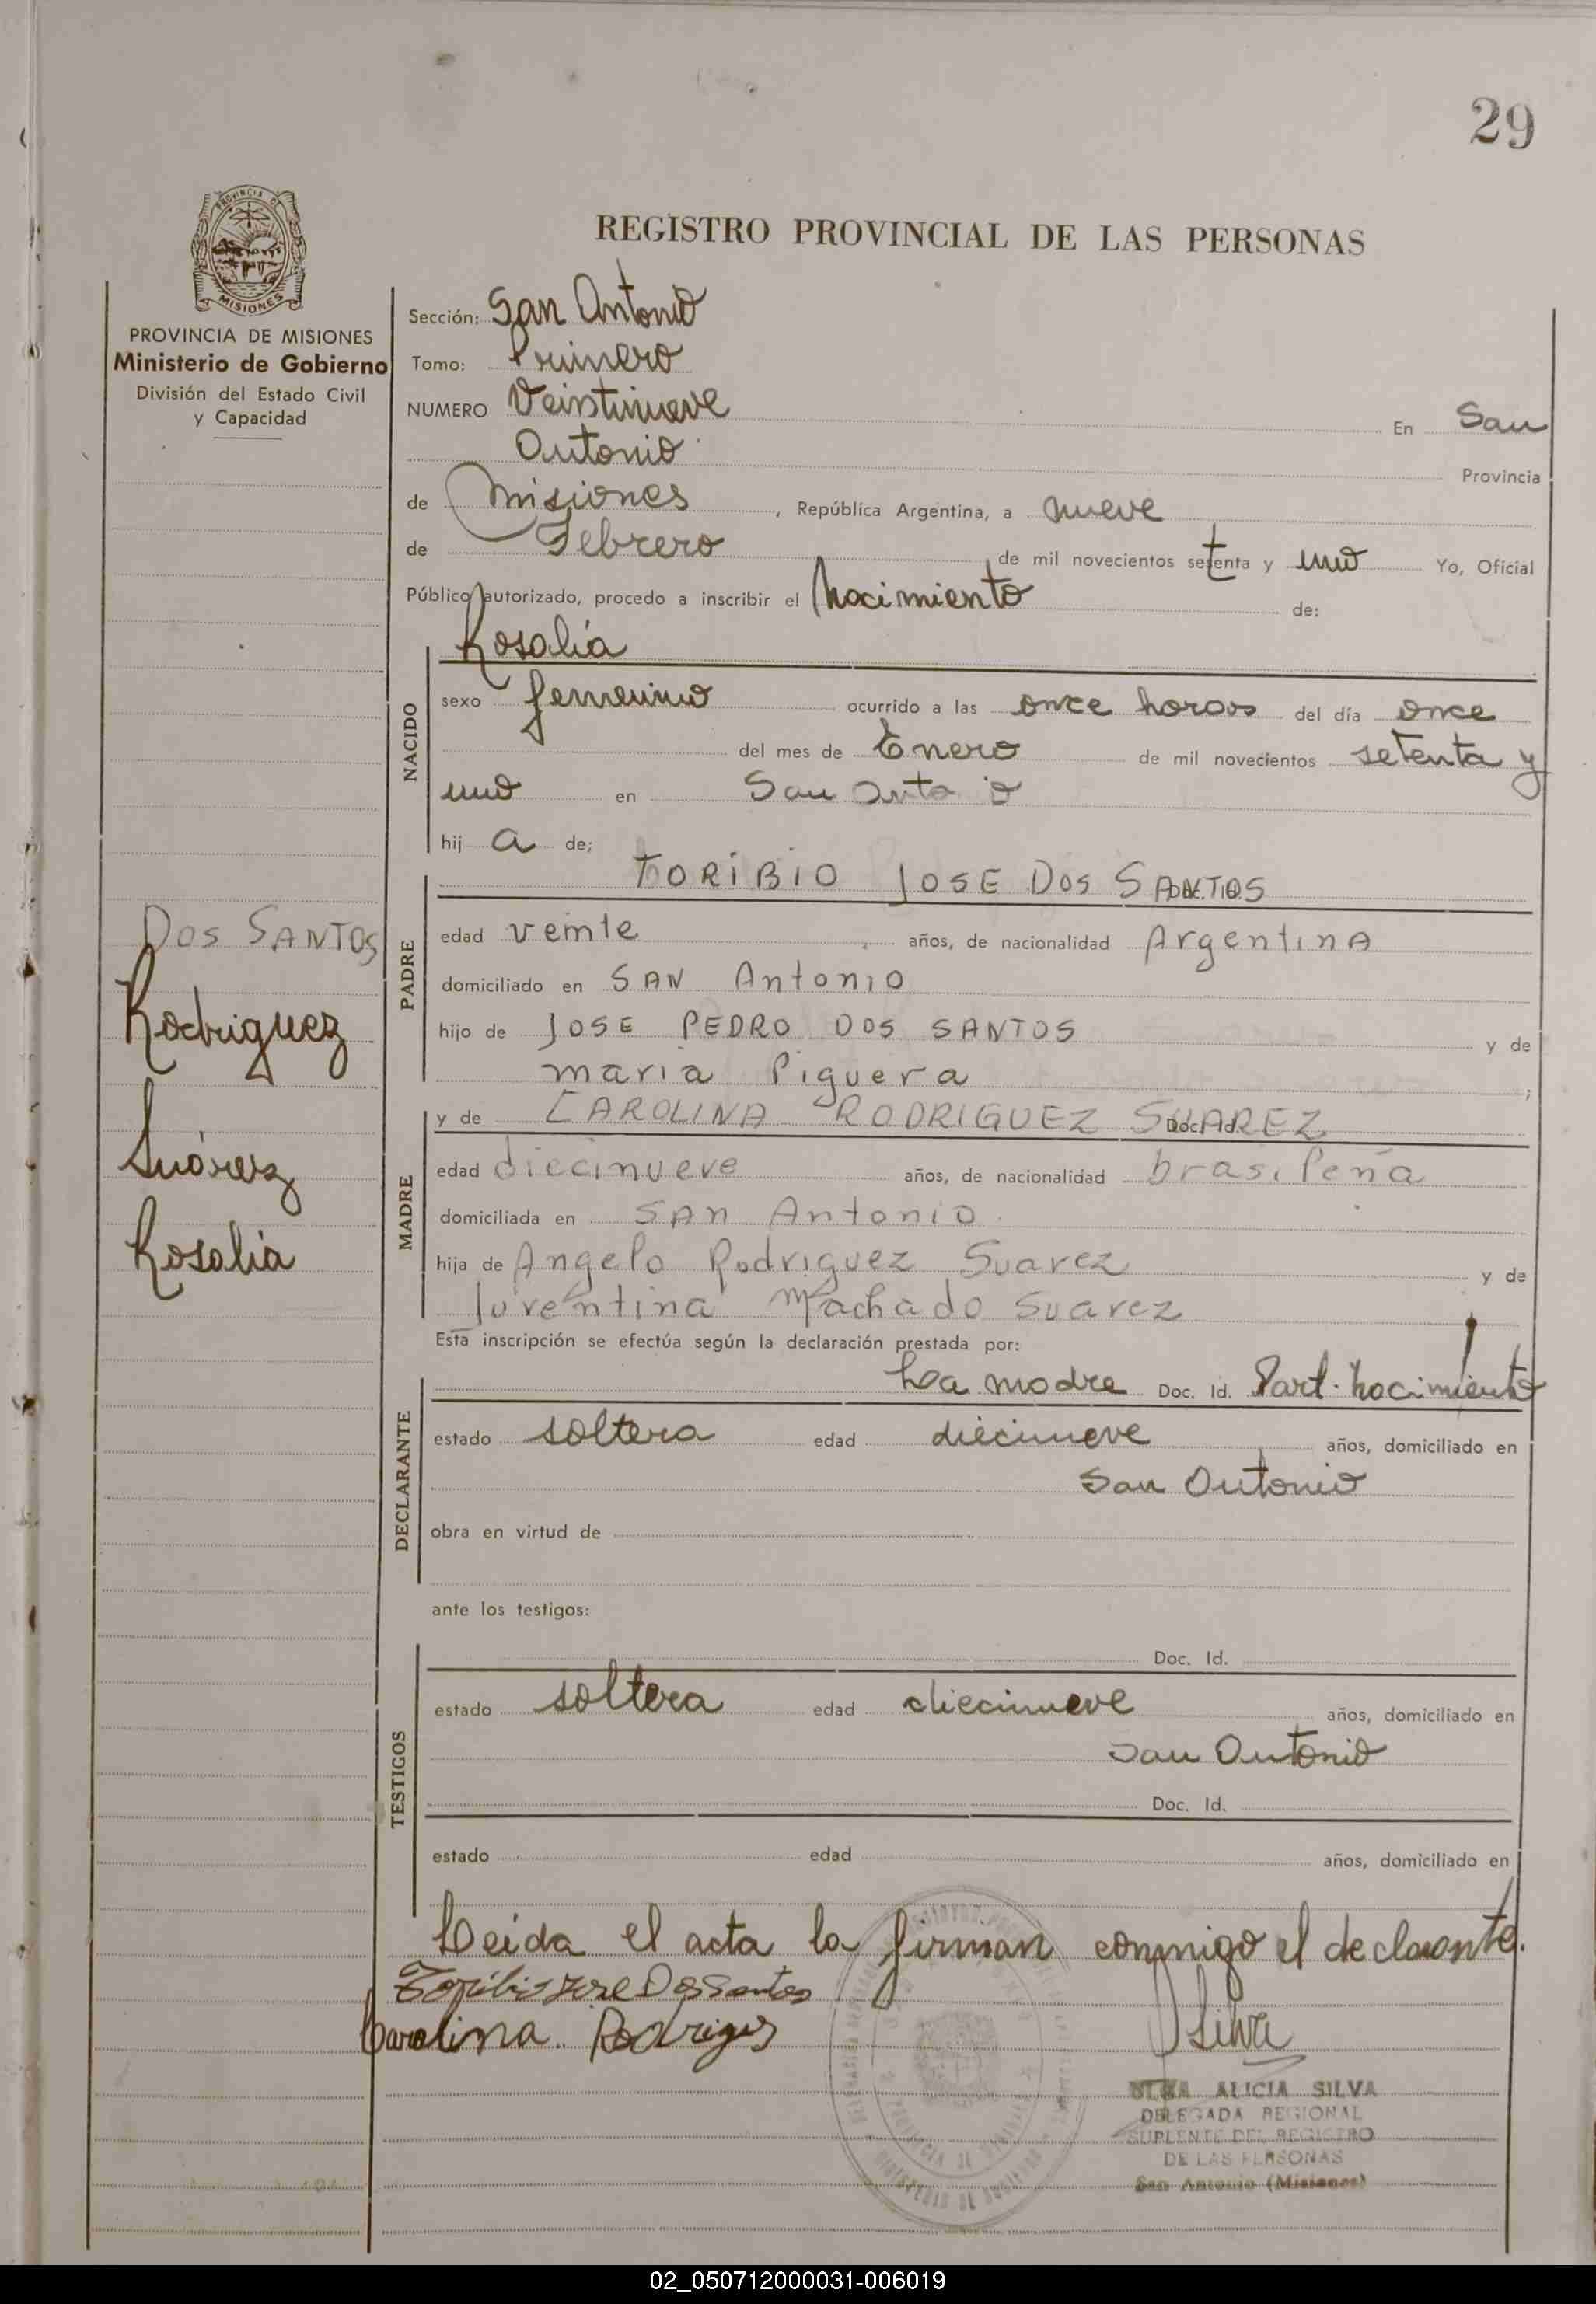 29
PROVINCIA DE
MISIONES
REGISTRO PROVINCIAL DE LAS PERSONAS
PROVINCIA DE MISIONES
Ministerio de Gobierno
División del Estado Civil
y Capacidad
Sección: San Antonio
Tomo: Primero
NUMERO Veintinueve En San
Antonio Provincia
de Misiones, República Argentina, a nueve
de Febrero de mil novecientos setenta y uno Yo, Oficial
Público autorizado, procedo a inscribir el Nacimiento de:
Rosalía
NACIDO
sexo femenino ocurrido a las once horas del día once
del mes de Enero de mil novecientos setenta y
uno en San Anto io
hij a de;
TORIBIO JOSE DOS SANTOS
DOS SANTOS
Rodriguez
Suárez
Rosalía
PADRE
edad veinte años, de nacionalidad Argentina
domiciliado en SAN Antonio
hijo de JOSE PEDRO DOS SANTOS y de
maria Piguera ;
MADRE
y de CAROLINA RODRIGUEZ SUAREZ
edad diecinueve años, de nacionalidad brasileña
domiciliada en SAN Antonio.
hija de Angelo Rodriguez Suarez y de
Juventina Machado Suarez
Esta inscripción se efectúa según la declaración prestada por:
DECLARANTE
La madre Doc. Id. Part. Nacimiento
estado soltera edad diecinueve años, domiciliado en
San Antonio
obra en virtud de
ante los testigos:
TESTIGOS
Doc. Id.
estado soltera edad diecinueve años, domiciliado en
San Antonio
Doc. Id.
estado edad años, domiciliado en
Leida el acta la firman conmigo el declarante.
Toribio Jose Dos Santos
Carolina Rodrigues
Silva
ALICIA SILVA
DELEGADA REGIONAL
SUPLENTE DEL REGISTRO
DE LAS PERSONAS
San Antonio (Misiones)
02_050712000031-006019